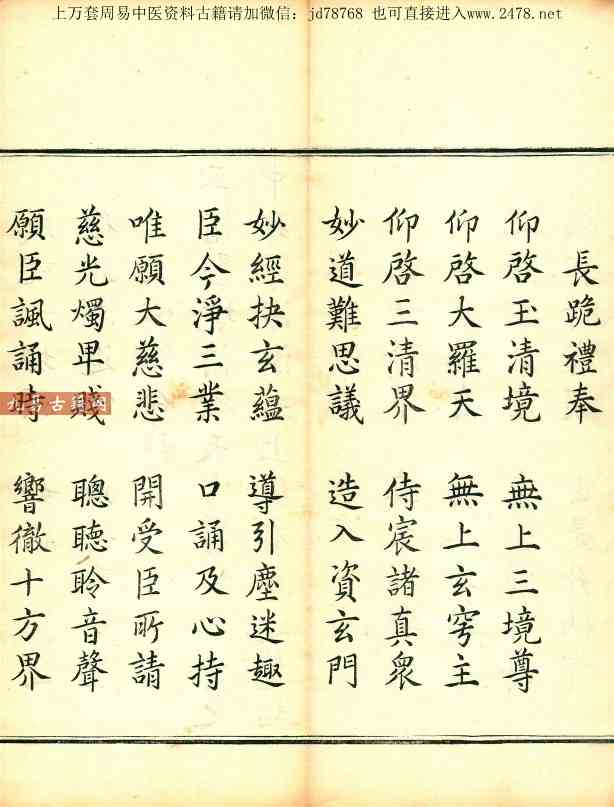 上万套周易中医资料古籍请加微信：jd78768 也可直接进入www.2478.net
長跪禮奉
仰啓玉清境 無上三境尊
仰啓大羅天 無上玄穹主
仰啓三清界 侍宸諸真衆
妙道難思議 造入資玄門
妙經抉玄蘊 導引塵迷趣
臣今淨三業 口誦及心持
唯願大慈悲 開受臣所請
慈光燭卑賤 聰聽聆音聲
願臣諷誦時 響徹十方界